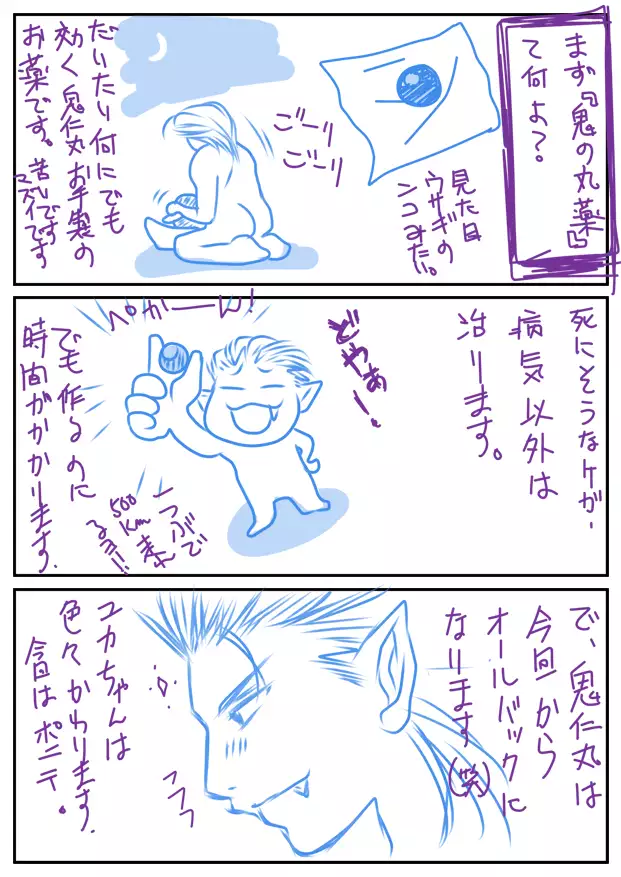 まず『鬼の丸薬』
て何よ？。
見た目
ウサギの
ンコみた。
ごーり
ごーり
だいたい何にでも
効く鬼仁丸お手製の
お薬です。苦いです
マズイです
死にそうなケガ・
病気以外は
治ります。
どやぁー！
ペかーーん！
一つぶで
500
km走れ
るヨ!!
でも作るのに
時間がかかります。
で、鬼仁丸は
今回から
オールバックに
なります(笑)
フフフ
ユカちゃんは
色々かわります。
今日はポニテ。